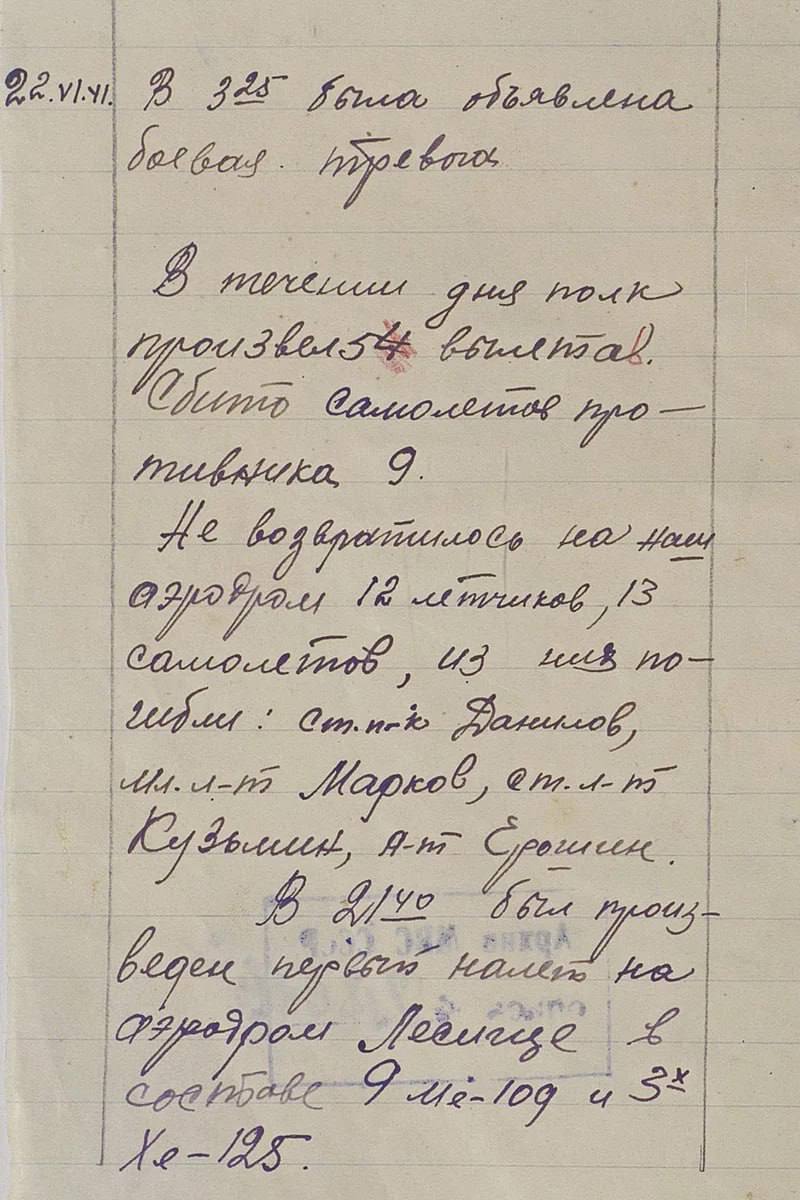 22.VI.41. В 3 25 была объявлена
боевая тревога
В течении дня полк
произвел 54 вылетов.
Сбито самолетов про-
тивника 9.
Не возвратилось на наш
аэродром 12 летчиков, 13
самолетов, из них по-
гибли: ст.п-к Данилов,
мл. л-т Марков, ст. л-т
Кузьмин, л-т Ерошин.
В 21 40 был произ-
веден первый налет на
аэродром Лесище в
составе 9 Ме-109 и 3х
Хе-125.
Архив МВС СССР
опись №